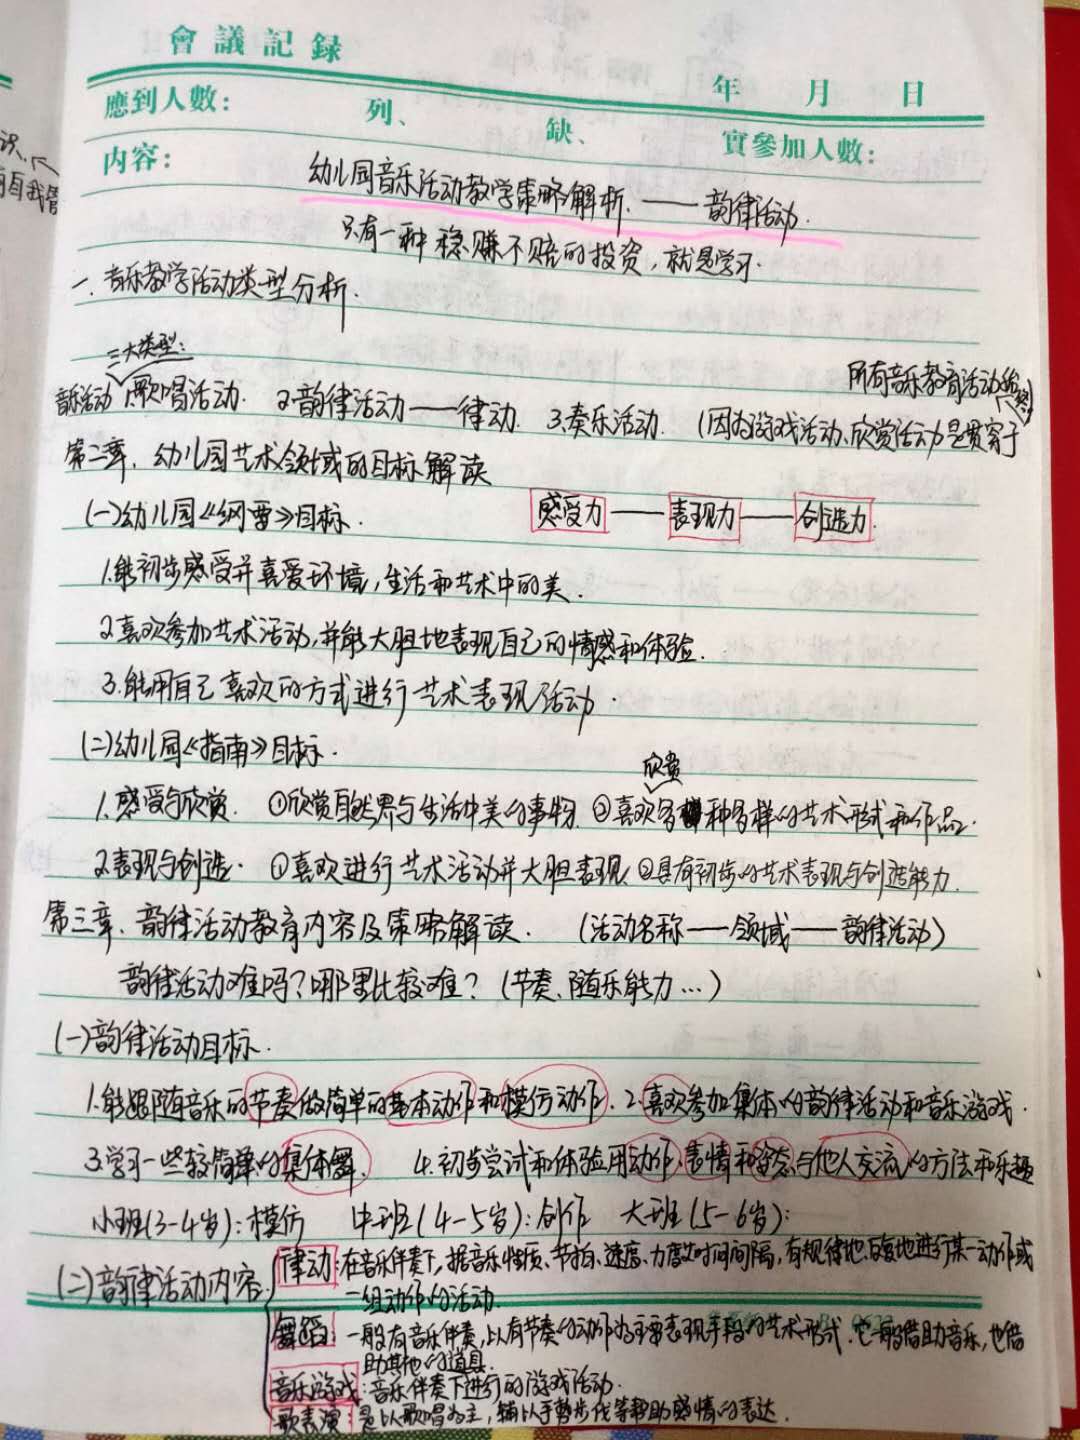 會議記録
年 月 日
應到人數： 列、 缺、 實參加人數：
内容：
幼儿园音乐活动教学策略解析.——韵律活动.
只有一种稳赚不赔的投资，就是学习.
一、音乐教学活动类型分析.
三大类型：
所有音乐教育活动
音乐活动 1.歌唱活动. 2.韵律活动——律动. 3.奏乐活动. (因为游戏活动、欣赏活动是贯穿于
第二章、幼儿园艺术领域的目标解读
(一)幼儿园《纲要》目标. 感受力——表现力——创造力.
1.能初步感受并喜爱环境，生活和艺术中的美.
2.喜欢参加艺术活动，并能大胆地表现自己的情感和体验.
3.能用自己喜欢的方式进行艺术表现活动.
(二)幼儿园《指南》目标.
欣赏
1.感受与欣赏. ①欣赏自然界与生活中美的事物. ②喜欢多种多样的艺术形式和作品.
2.表现与创造. ①喜欢进行艺术活动并大胆表现. ②具有初步的艺术表现与创造能力.
第三章、韵律活动教育内容及策略解读. (活动名称——领域——韵律活动)
韵律活动难吗？哪里比较难？(节奏、随乐能力…)
(一)韵律活动目标.
1.能跟随音乐的节奏做简单的基本动作和模仿动作. 2.喜欢参加集体的韵律活动和音乐游戏.
3.学习一些较简单的集体舞. 4.初步尝试和体验用动作、表情和姿态与他人交流的方法和乐趣
小班(3-4岁)：模仿 中班(4-5岁)：创作 大班(5-6岁)：
律动：在音乐伴奏下，据音乐性质、节拍、速度、力度 时间间隔，有规律地、反复地进行某一动作或
(二)韵律活动内容 一组动作的活动.
舞蹈：一般有音乐伴奏，以有节奏的动作为主要表现手段的艺术形式.它一般借助音乐，也借
助其他的道具.
音乐游戏：音乐伴奏下进行的游戏活动.
歌表演：是以歌唱为主，辅以手势步伐等帮助感情的表达.